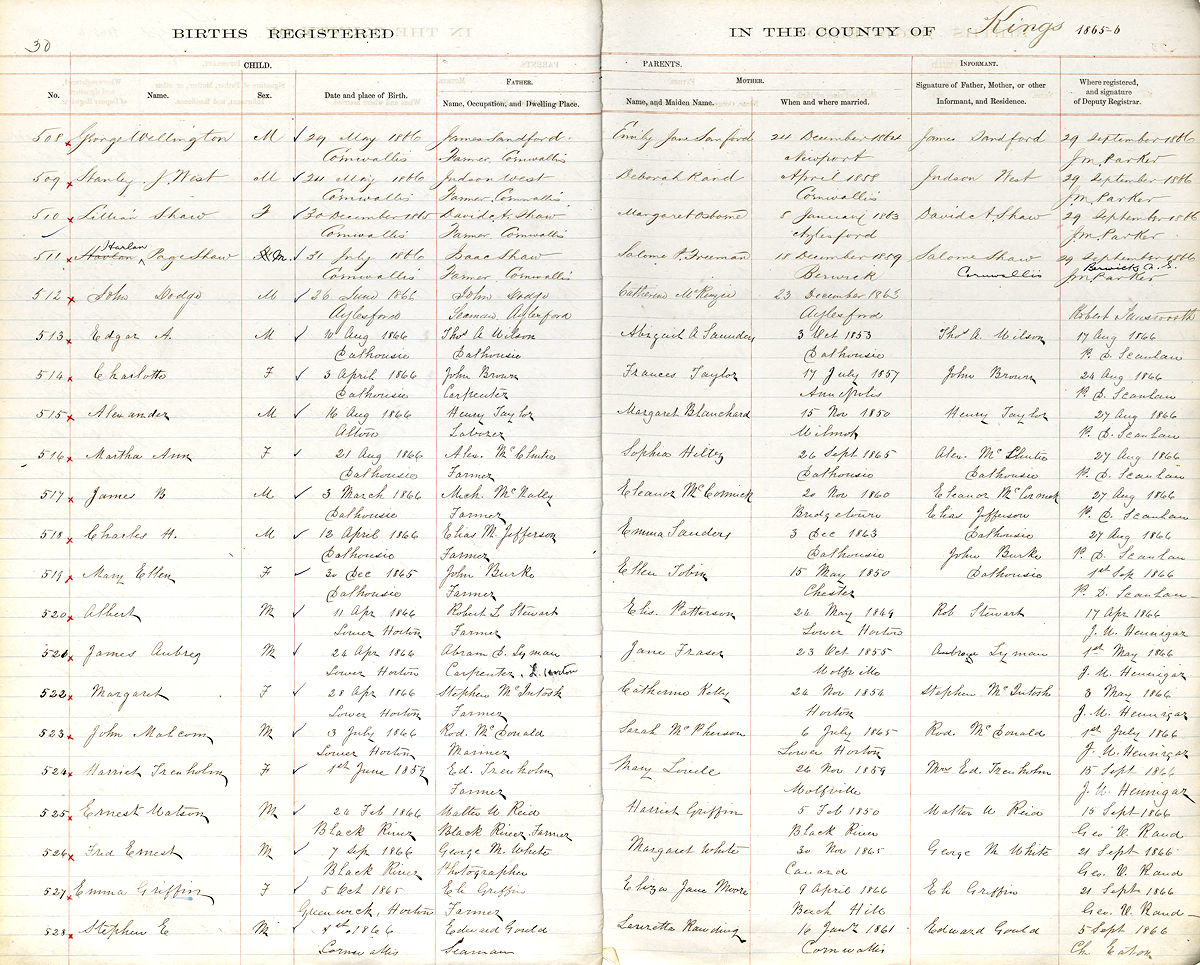 30
BIRTHS REGISTERED IN THE COUNTY OF Kings 1865-6
CHILD. PARENTS. INFORMANT.
FATHER. MOTHER.
No. Name. Sex. Date and place of Birth. Name, Occupation, and Dwelling Place. Name, and Maiden Name. When and where married. Signature of Father, Mother, or other Informant, and Residence. Where registered, and signature of Deputy Registrar.
508 George Wellington M 29 May 1866 James Sandford Emily Jane Sanford 24 December 1864 James Sandford 29 September 1866
Cornwallis Farmer Cornwallis Newport J M Parker
509 Stanley J West M 24 May 1866 Judson West Deborah Rand April 1858 Judson West 29 September 1866
Cornwallis Farmer Cornwallis Cornwallis J M Parker
510 Lillian Shaw F 30 December 1865 David A Shaw Margaret Osborne 5 January 1863 David A Shaw 29 September 1866
Cornwallis Farmer Cornwallis Aylesford J M Parker
Harlan
511 Page Shaw M 31 July 1866 Isaac Shaw Salome P. Freeman 18 December 1859 Salome Shaw 29 September 1866
Cornwallis Farmer Cornwallis Berwick Cornwallis Berwick J M Parker
512 John Dodge M 26 June 1866 John Dodge Catherine McKenzie 23 December 1863
Aylesford Seaman Aylesford Aylesford Robert
513 Edgar A. M Aug 1866 Thos A Wilson Abigail A Saunders 3 Oct 1853 Thos A. Wilson 17 Aug 1866
Dalhousie Dalhousie Dalhousie P. D. Scanlan
514 Charlotte F 3 April 1866 John Brown Frances Taylor 17 July 1857 John Brown 24 Aug 1866
Dalhousie Carpenter Annapolis P. D. Scanlan
515 Alexander M 16 Aug 1866 Henry Taylor Margaret Blanchard 15 Nov 1850 Henry Taylor 27 Aug 1866
Alton Laborer Wilmot P. D. Scanlan
516 Martha Ann F 21 Aug 1866 Alex. Sophia Hiltz 26 Sept 1865 Alex. 27 Aug 1866
Dalhousie Farmer Dalhousie Dalhousie P. D. Scanlan
517 James B M 3 March 1866 Mich. McNally Eleanor McCormick 20 Nov 1860 Eleanor McCormick 27 Aug 1866
Dalhousie Farmer Bridgetown Elias Jefferson P. D. Scanlan
518 Charles H. M 12 April 1866 Elias M. Jefferson Emma Sanders 3 Dec 1863 Dalhousie 27 Aug 1866
Dalhousie Farmer Dalhousie John Burke P. D. Scanlan
519 Mary Ellen F 30 Dec 1865 John Burke Ellen Tobin 15 May 1850 Dalhousie 1st Sep 1866
Dalhousie Farmer Chester P. D. Scanlan
520 Albert M 11 Apr 1866 Robert L Stewart Elis. Patterson 24 May 1849 Rob Stewart 17 Apr 1866
Lower Horton Farmer Lower Horton J. W. Hennigar
521 James Aubrey M 24 Apr 1866 Abram D. Lyman Jane Fraser 23 Oct 1855 Lyman 1st May 1866
Lower Horton Carpenter, L. Horton Wolfville J. W. Hennigar
522 Margaret F 28 Apr 1866 Stephen McIntosh Catherine Kelly 24 Nov 1854 Stephen McIntosh 3 May 1866
Lower Horton Farmer Horton J. W. Hennigar
523 John Malcom M 3 July 1866 Rod. McDonald Sarah McPherson 6 July 1865 Rod. McDonald 1st July 1866
Lower Horton Mariner Lower Horton J. W. Hennigar
524 Harriet Trenholm F 1st June 1859 Ed. Trenholm Mary 26 Nov 1859 Mrs Ed. Trenholm 15 Sept 1866
Farmer Wolfville J. W. Hennigar
525 Ernest Watson M 24 Feb 1866 Walter W Reid Harriet Griffin 5 Feb 1850 Walter W Reid 15 Sept 1866
Black River Black River, Farmer Black River Geo. V. Rand
526 Fred Ernest M 7 Sep 1866 George M. White Margaret White 30 Nov 1865 George M White 21 Sept 1866
Black River Photographer Canard Geo. V. Rand
527 Emma Griffin F 5 Oct 1865 Eli Griffin Eliza Jane Moore 9 April 1866 Eli Griffin 21 Sept 1866
Greenwich, Horton Farmer Beech Hill Geo. V. Rand
528 Stephen E M 1866 Edward Gould Rawding 16 Jany 1861 Edward Gould 5 Sept 1866
Cornwallis Seaman Cornwallis Ch. Eaton